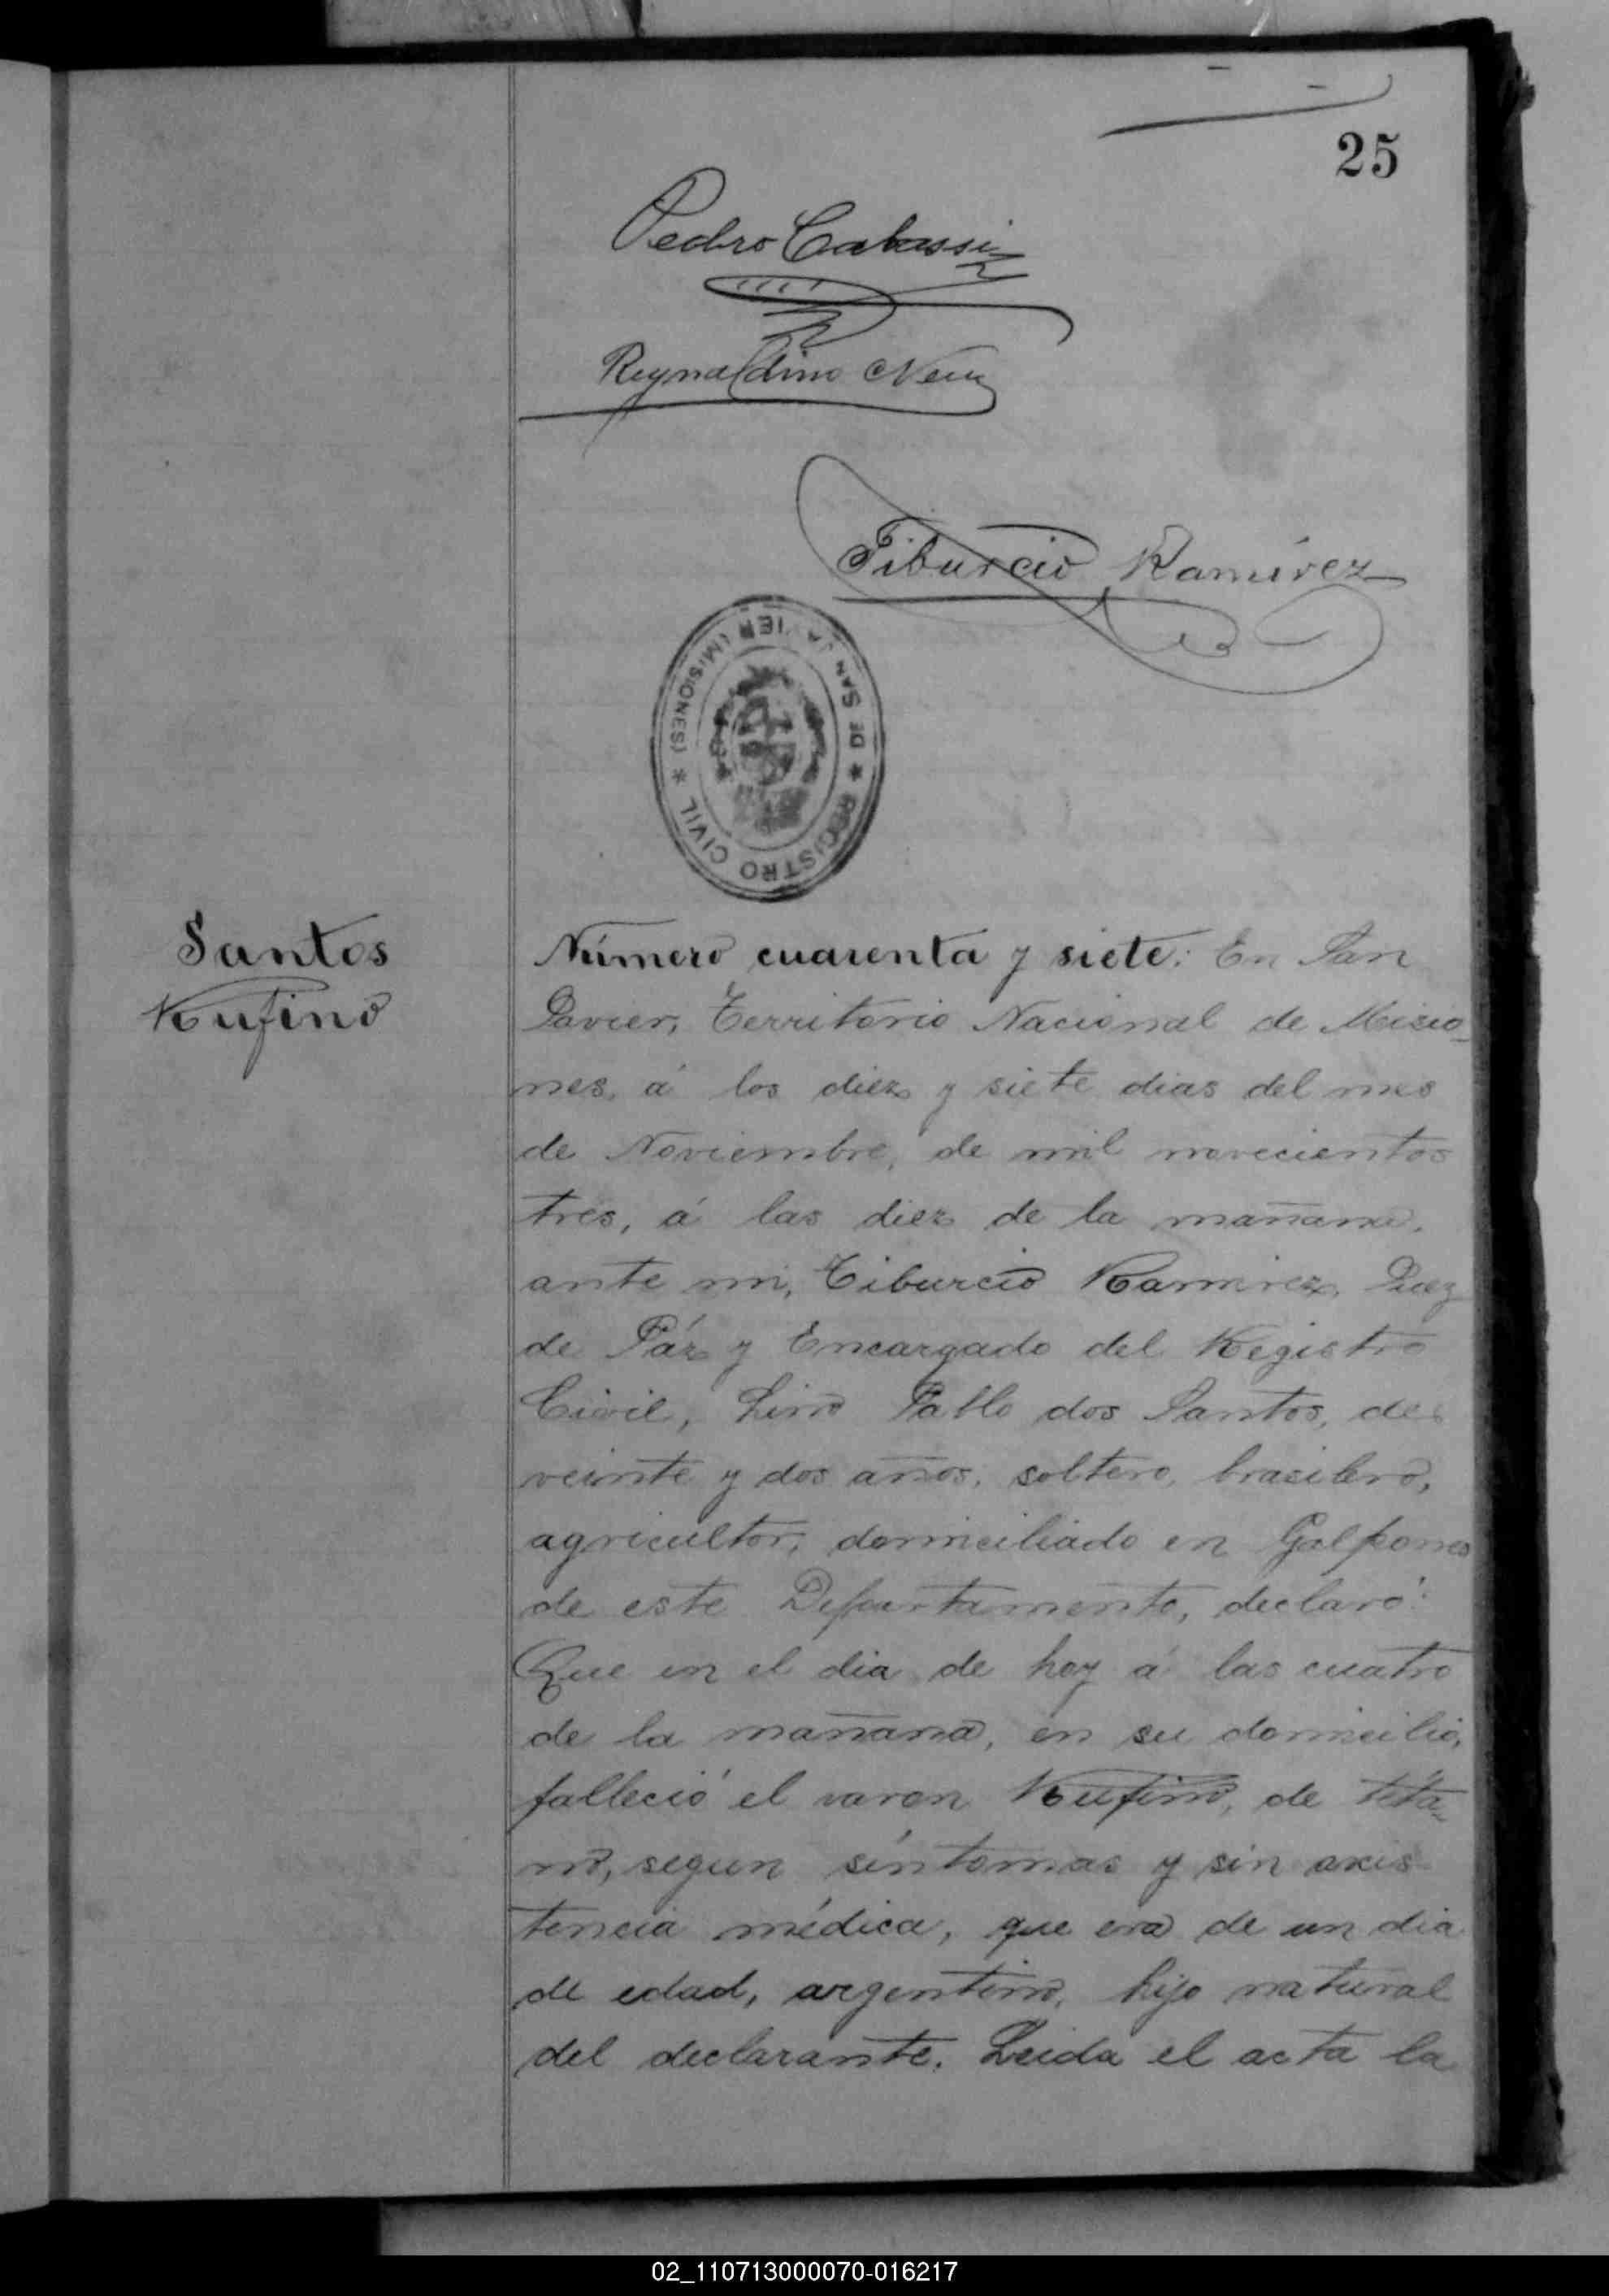 25
Pedro Cabassi
Reynaldino
Tiburcio Ramírez
REGISTRO CIVIL * (MISIONES)
DE SAN JAVIER
Santos
Rufino
Número cuarenta y siete: En San
Javier, Territorio Nacional de Misio-
nes, á los diez y siete dias del mes
de Noviembre, de mil novecientos
tres, á las diez de la mañana,
ante mi, Tiburcio Ramirez, Juez
de Páz y Encargado del Registro
Civil, Lino Pablo dos Santos, de
veinte y dos años, soltero, brasilero,
agricultor, domiciliado en Galpones
de este Departamento, declaró:
Que en el dia de hoy á las cuatro
de la mañana, en su domicilio,
falleció el varon Rufino, de téta-
no, segun síntomas y sin axis-
tencia médica, que era de un dia
de edad, argentino, hijo natural
del declarante. Leida el acta la
02_110713000070-016217